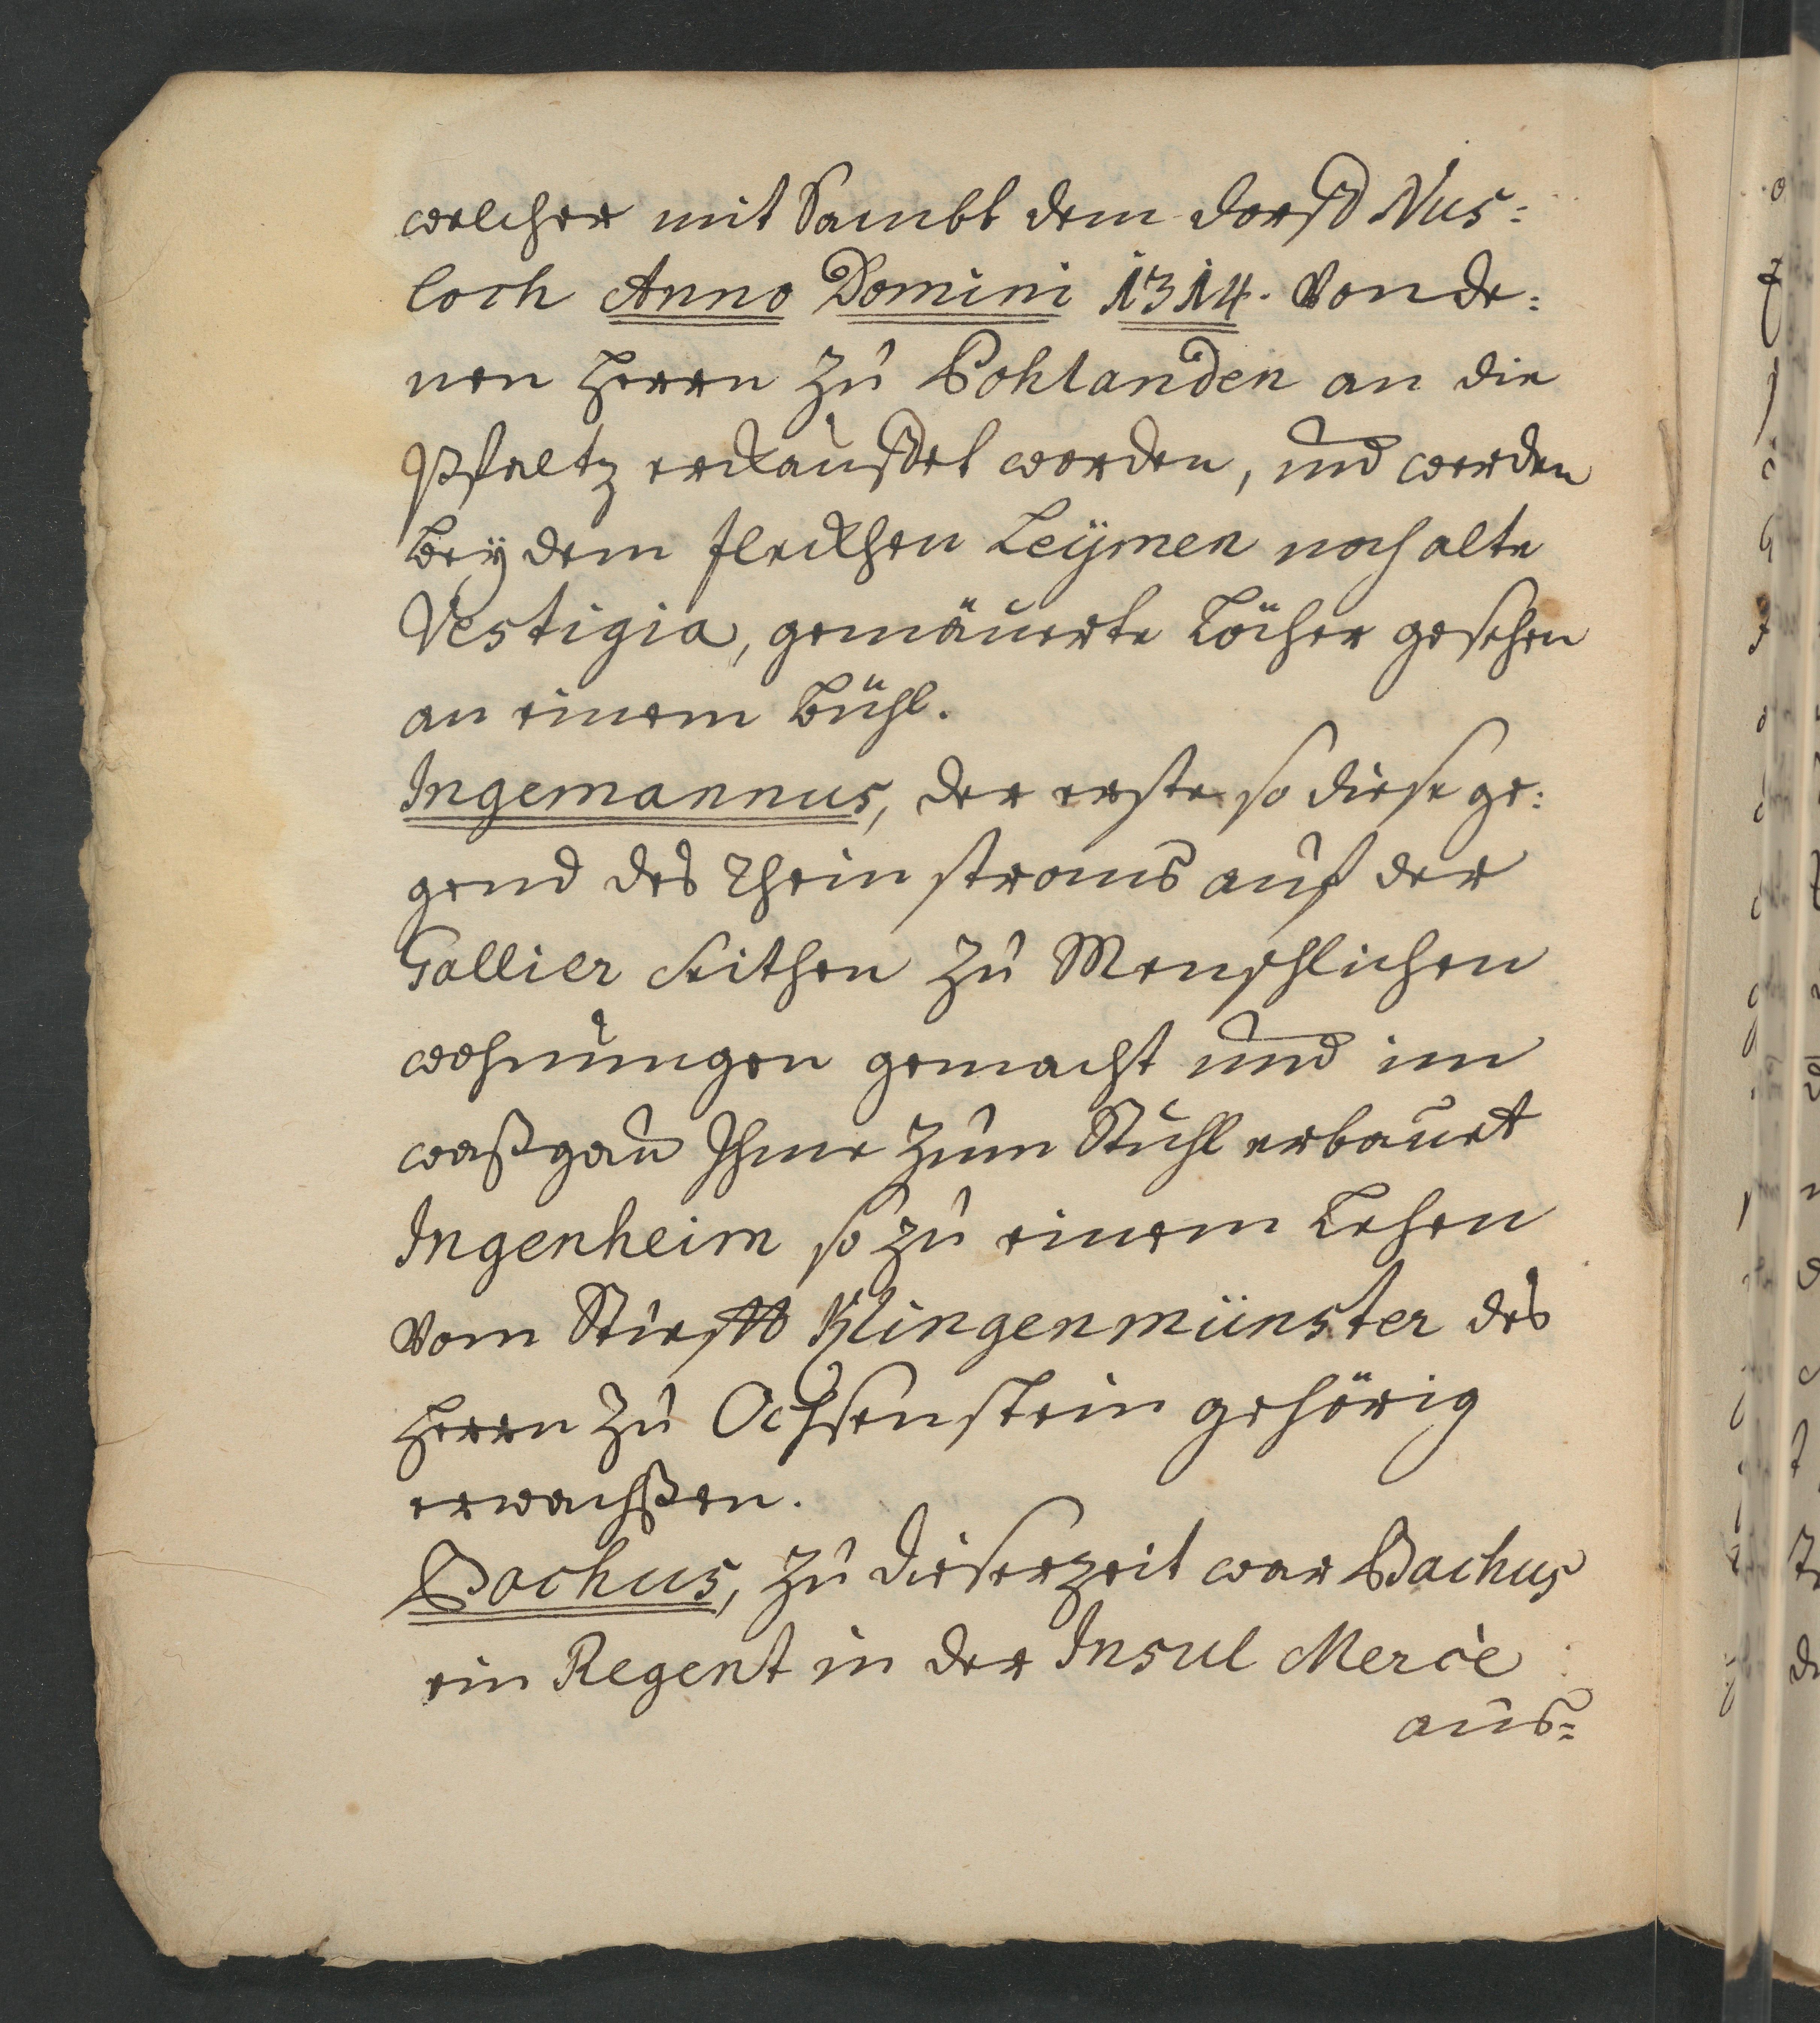 welcher mit Sambt dem dorff Nus:
loch Anno Domini 1314. Von de:
nen Herrn zu Bohlanden an die
Pfaltz erckauffet worden, und werden
bey dem fleckhen Leÿmen noch alte
Vestigia, gemäuerte Löcher gesehen
an einem Bühl.
Ingemannus, der erste so diese ge:
gend des Rheinstroms auf der
Gallier Seithen zu Menschlichen
wohnungen gemacht und im
waßgau Ihme zum Stuhl erbauet
Ingenheim so zu einem Lehen
vom Stiefft Klingenmünster des
Herrn zu Ochsenstein gehörig
erwachßen.
Bachus, zu dieser zeit war Bachus
ein Regent in der Insul Merie
aus=